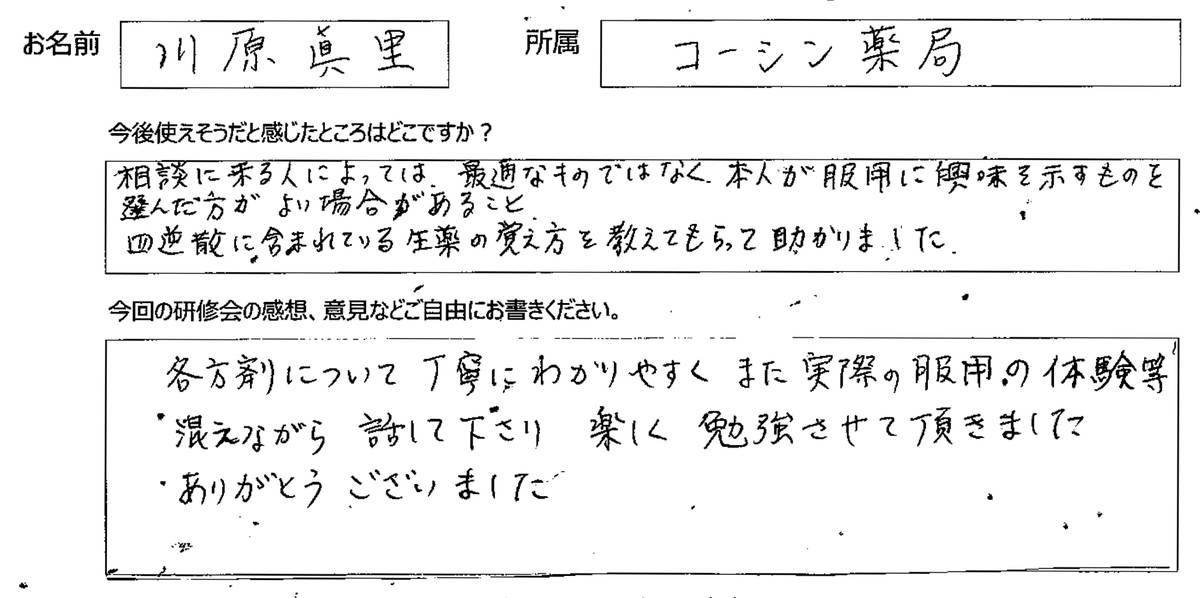 お名前 川原眞里 所属 コーシン薬局
今後使えそうだと感じたところはどこですか？
相談に来る人によっては、最適なものではなく、本人が服用に興味を示すものを
選んだ方が よい場合があること、
四逆散に含まれている生薬の覚え方を教えてもらって助かりました、
今回の研修会の感想、意見などご自由にお書きください。
各方剤について丁寧にわかりやすく また実際の服用の体験等
混えながら 話して下さり 楽しく 勉強させて頂きました
ありがとう ございました